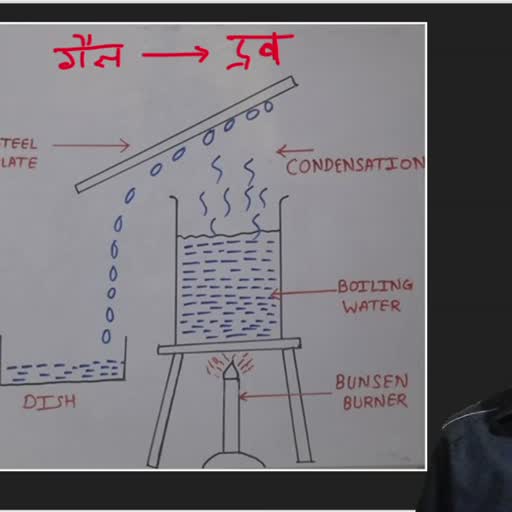 गैस → द्रव
TEEL
LATE
CONDENSATION
BOILING
WATER
BUNSEN
BURNER
DISH